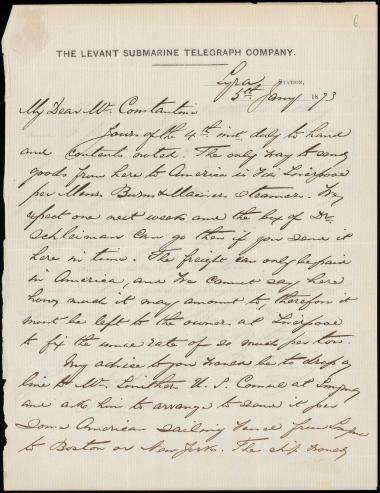 6
THE LEVANT SUBMARINE TELEGRAPH COMPANY.
Syra STATION,
5th Jany 1873
My Dear Mr. Constantin
Yours of the 4th inst duly to hand
and contents noted. The only way to send
goods from here to America is via Liverpool
per Messrs Burns & Maciver steamers. We
expect one next week and the box of Dr.
Schleiman can go then if you send it
here in time. The freight can only be paid
in America, and we cannot say here
how much it may amount to, therefore it
must be left to the owners at Liverpool
to fix the rate of so much per ton.
My advice to you would be to drop a
line to Mr. U. S. Consul at Smyrna
and ask him to arrange to send it per
some American sailing vessel from Smyrna
to Boston or New York. The ship would